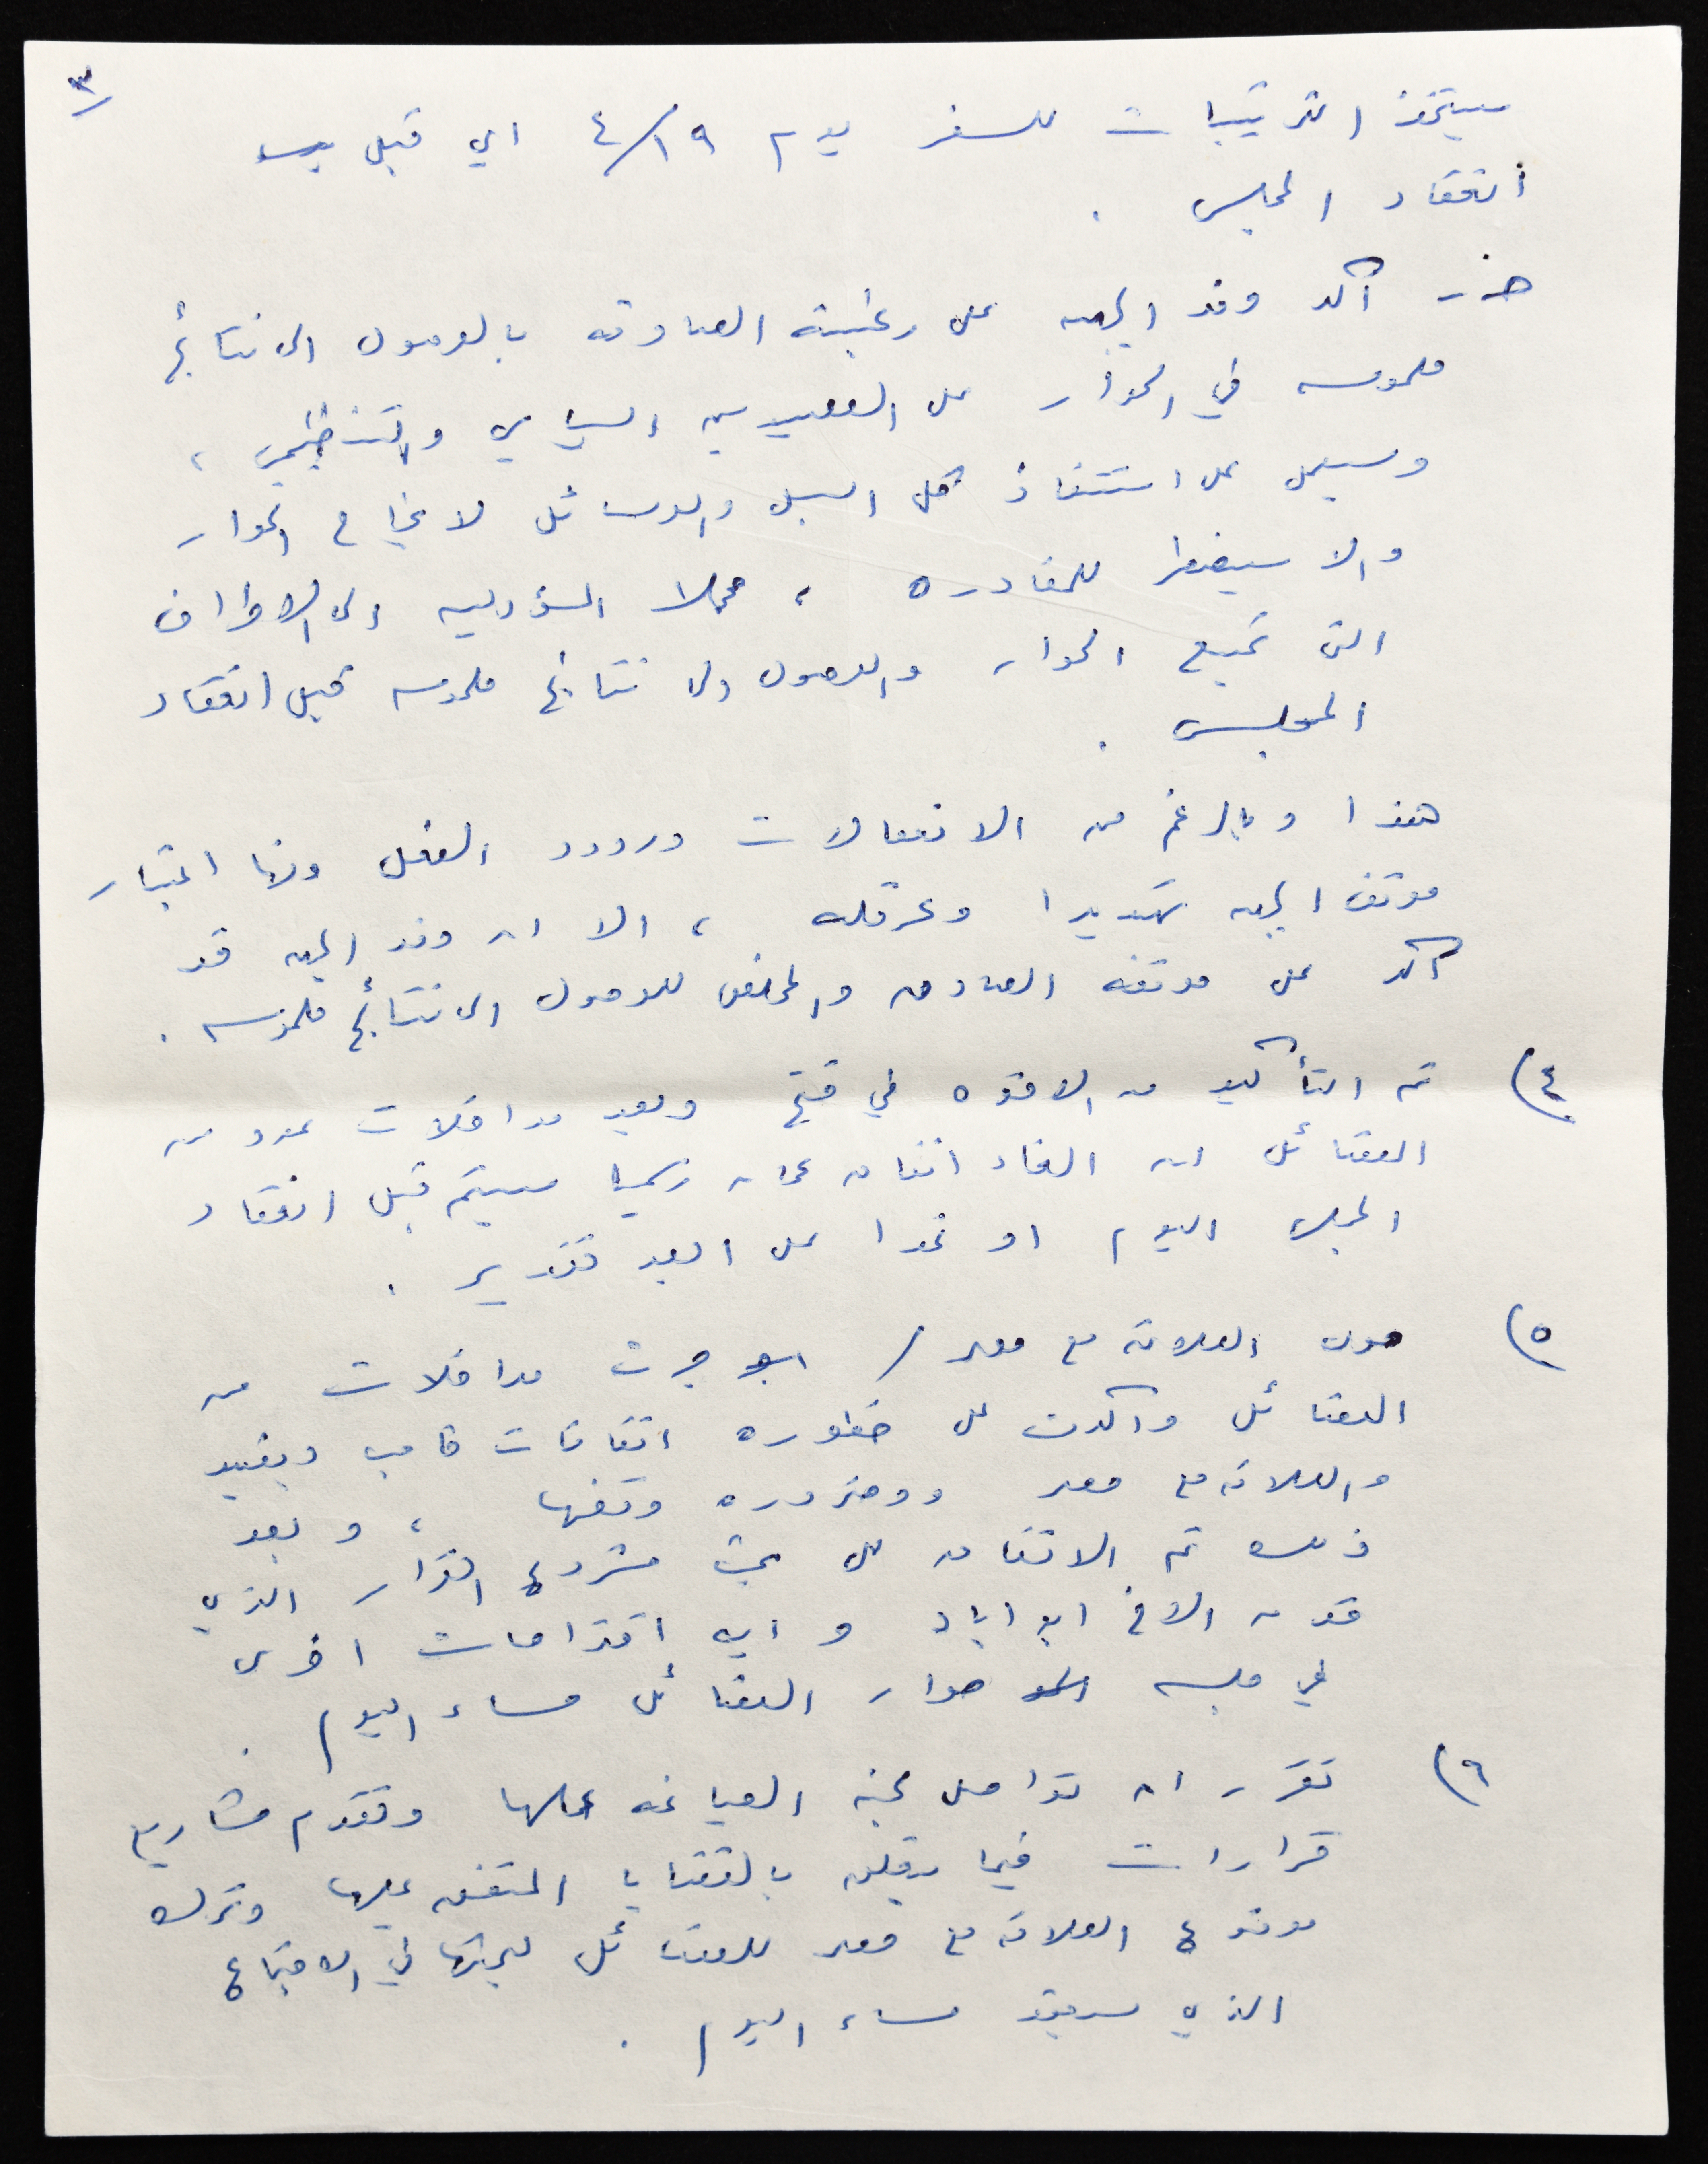 ٣
سيتخذ الترتيبات للسفر يوم ٤/١٩ اي قبل
انعقاد المجلس .
أكد وفد الجبهه على رغبته الصادقه بالوصول الى نتائج
ملموسه في الحوار على الصعيدين السياسي والتنظيمي ،
وسيعمل على استنفاذ كل السبل والوسائل لانجاح الحوار
والا سيضطر للمغادره ، محملا المسؤوليه الى الاطراف
التي تميع الحوار والوصول الى نتائج ملموسه قبل انعقاد
المجلس .
هذا وبالرغم من الانفعالات وردود الفعل ومنها اعتبار
موقف الجبهه تهديدا وعرقله ، الا ان وفد الجبهه قد
أكد على موقفه الصادق والمخلص للوصول الى نتائج ملموسه .
٤) تم التأكيد من الاخوه في فتح وبعد مداخلات عدد من
الفصائل ان الغاء اتفاق عمان رسميا سيتم قبل انعقاد
المجلس اليوم او غدا على ابعد تقدير .
٥) حول العلاقه مع مصر / جرت مداخلات من
الفصائل وأكدت على خطوره اتفاقات كامب ديفيد
والعلاقه مع مصر وضروره وقفها ، وبعد
ذلك تم الاتفاق على بحث مشروع القرار الذي
قدمه الاخ ابو اياد و ايه اقتراحات اخرى
في جلسه حوار الفصائل مساء اليوم .
٦) تقرر ان تواصل لجنه الصياغه عملها وتقدم مشاريع
قرارات فيما يتعلق بالقضايا المتفق عليها وترك
موضوع العلاقه مع مصر للفصائل لبحثها في الاجتماع
الذي سيعقد مساء اليوم .